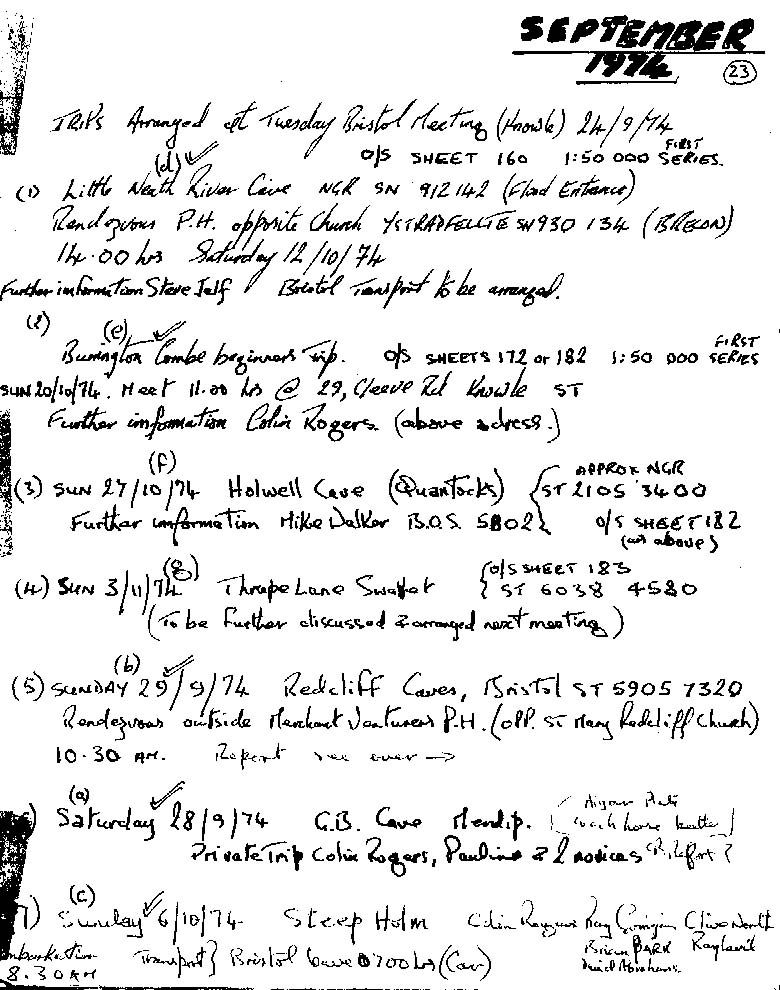 SEPTEMBER
1974 (23)
TRIPS Arranged at Tuesday Bristol Meeting (Knowle) 24/9/74
(d) ✓ O/S SHEET 160 1:50 000 FIRST SERIES.
(1) Little Neath River Cave NGR SN 912142 (Flood Entrance)
Rendezvous P.H. opposite Church YSTRADFELLTE SN 930 134 (BRECON)
14.00 hrs Saturday 12/10/74
Further information Steve Jelf Bristol Transport to be arranged.
(2) (e) ✓
Burrington Combe beginners Trip. O/S SHEETS 172 or 182 1:50 000 FIRST SERIES
SUN 20/10/74. Meet 11.00 hrs @ 29, Cleeve Rd Knowle ST
Further information Colin Rogers. (above adress.)
(f) APPROX NGR
(3) SUN 27/10/74 Holwell Cave (Quantocks) { ST 2105 3400
Further information Mike Walker B.O.S. 5802 } O/S SHEET 182
(as above)
(g) { O/S SHEET 183
(4) SUN 3/11/74 Thrupe Lane Swallet { ST 6038 4580
(To be further discussed & arranged next meeting)
(b) ✓
(5) SUNDAY 29/9/74 Redcliff Caves, Bristol ST 5905 7320
Rendezvous outside Merchant Venturers P.H. (opp. St Mary Redcliff Church)
10.30 AM. Report see over →
(a) ✓
) Saturday 28/9/74 G.B. Cave Mendip.
Private Trip Colin Rogers, Pauline & 2 novices
(c) ✓
7) Sunday 6/10/74 Steep Holm Colin Rogers Ray Clive North
Embarkation Transport } Bristol leave 0700 hrs (Car) Brian PARK Ray
8.30 AM David Abrahams.